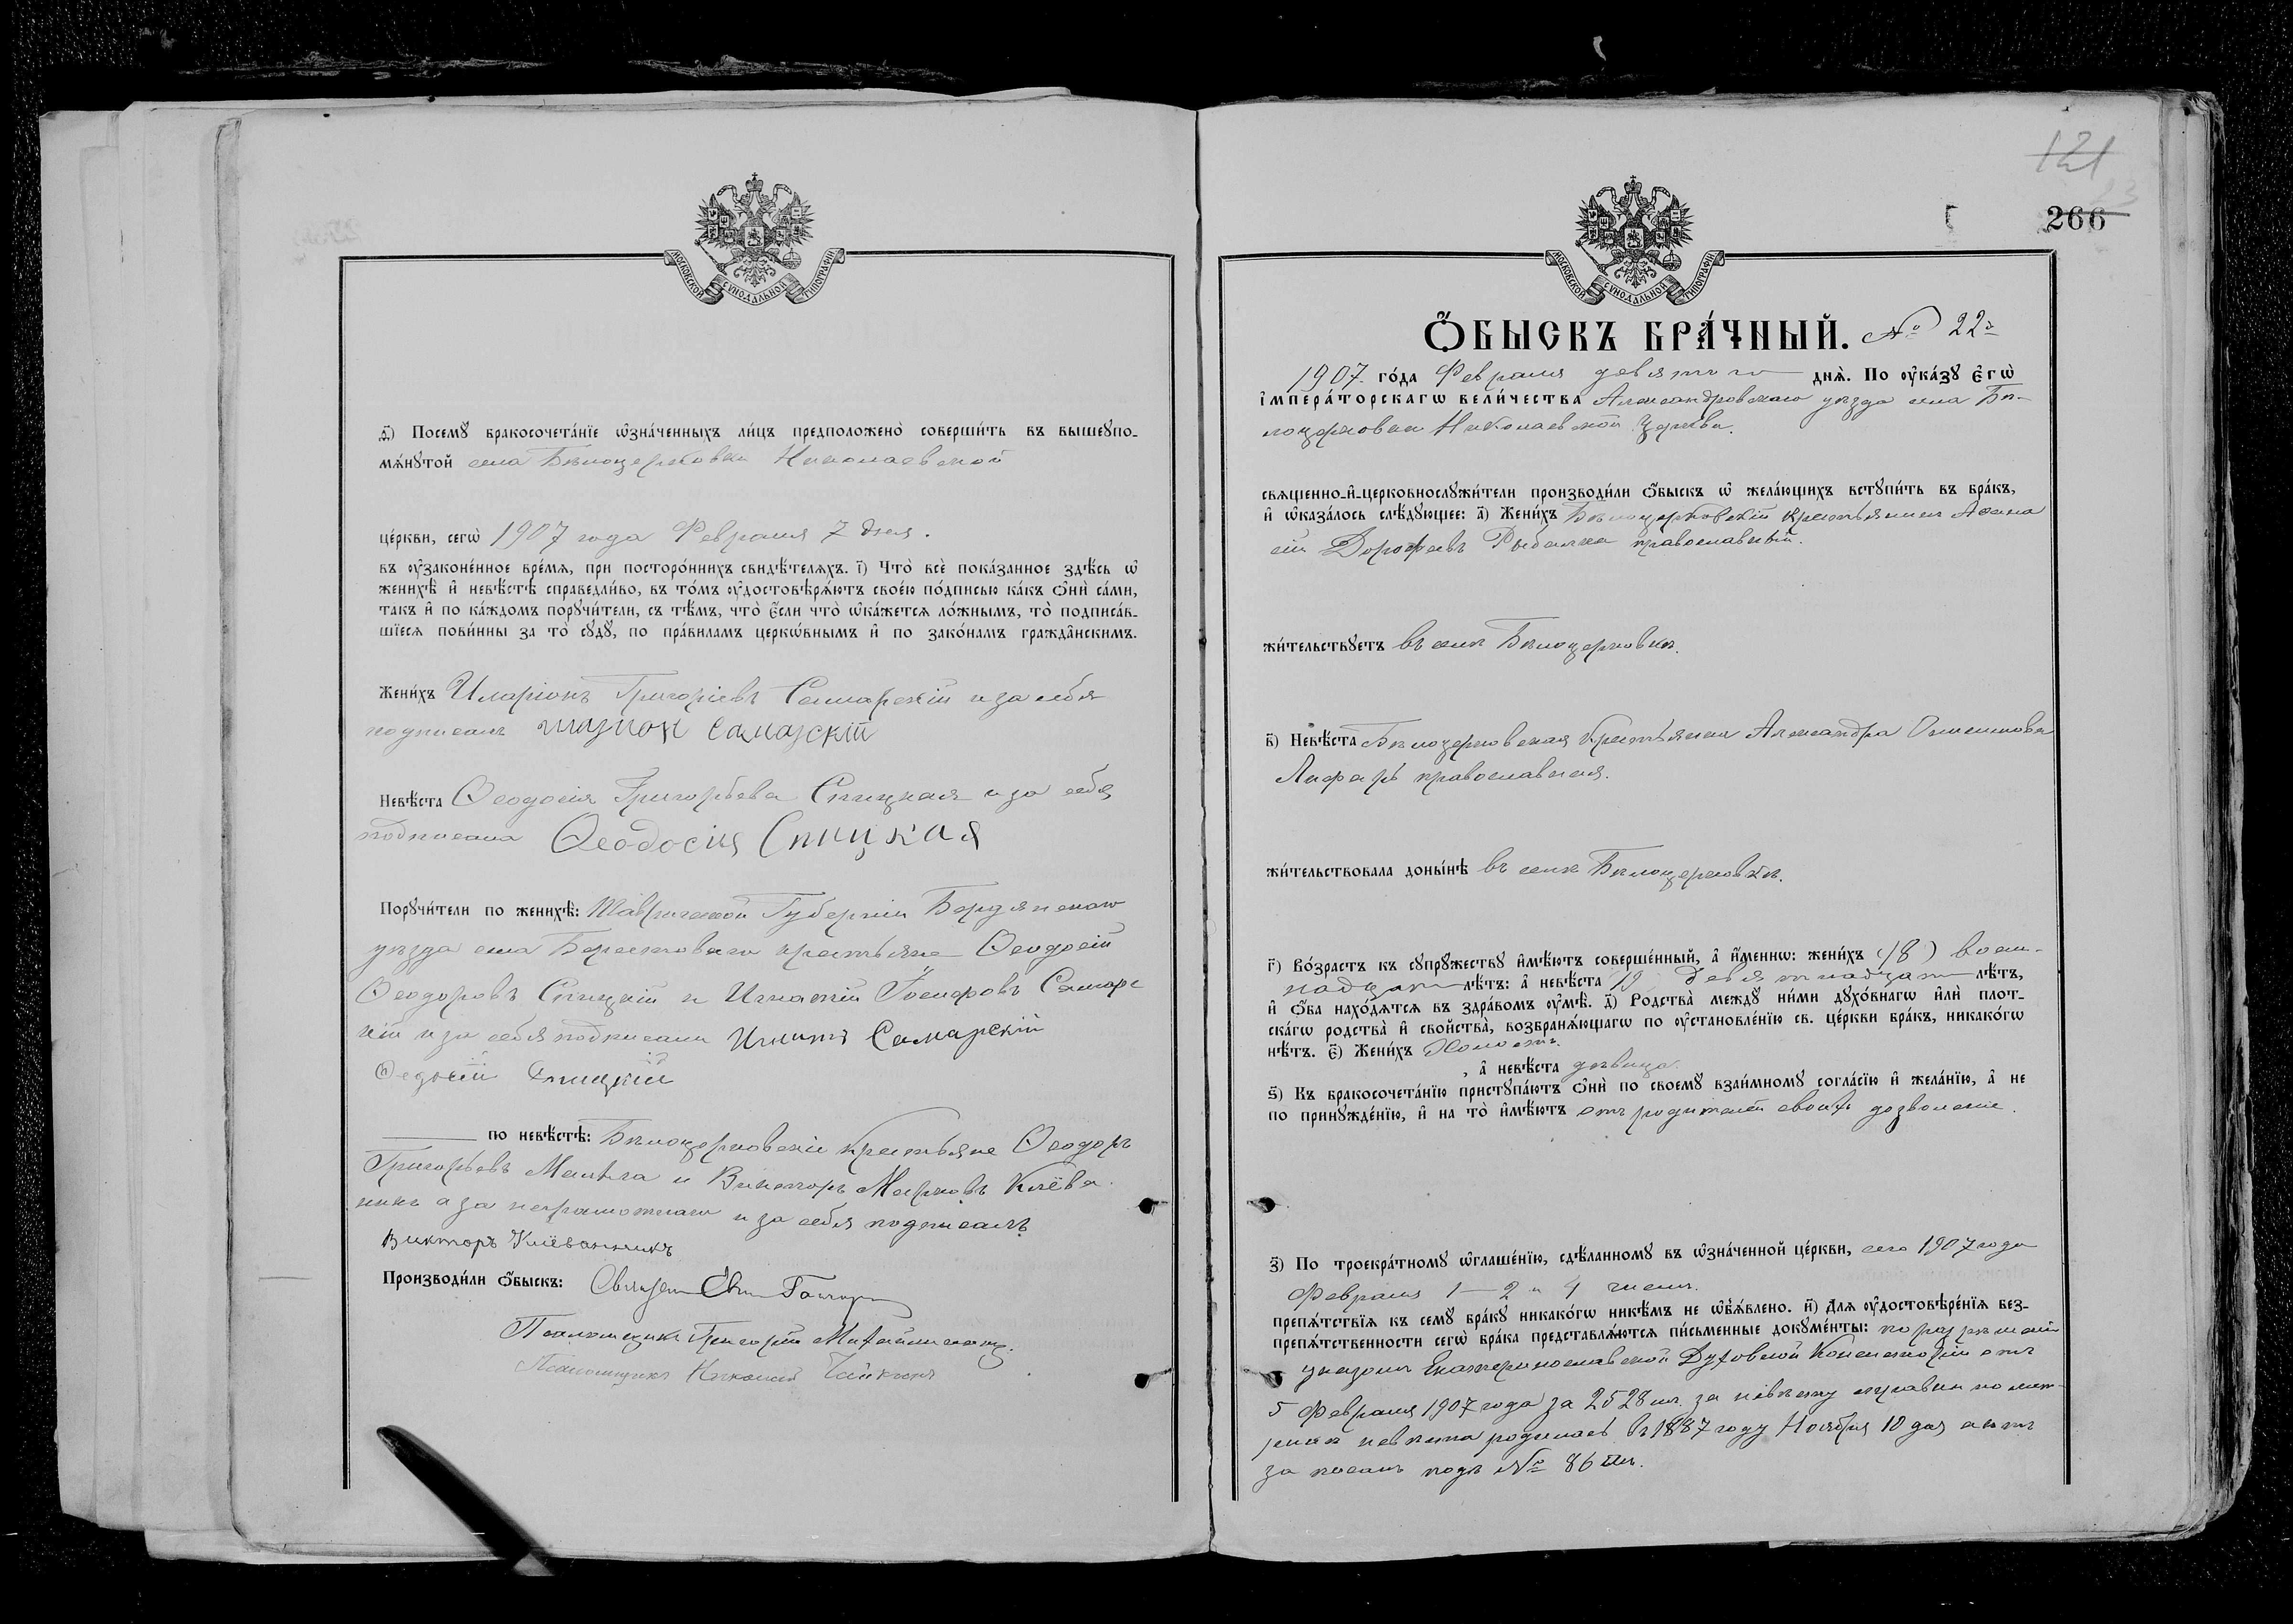 МОСКОВСКОЙ СУНОДАЛЬНОЙ ТИПОГРАФІИ
ѳ҃) Посемꙋ̀ бракосочета́нїе ѡ҆зна́ченныхъ ли́цъ предположено̀ соверши́ть въ вышеупо-
мѧ́нꙋтой села Бѣлоцерковки Николаевской
це́ркви, сегѡ̀ 1907 года Февраля 7 дня.
въ ᲂу҆зако́ненное вре́мѧ, при посторо́ннихъ свидѣ́телѧхъ. і҃) Что̀ всѐ пока́занное здѣ́сь ѡ҆
женихѣ̀ и҆ невѣ́стѣ справедли́во, въ то́мъ ᲂу҆достовѣрѧ́ютъ свое́ю по́дписью ка́къ ѻ҆нѝ са́ми,
такъ и҆ по ка́ждомъ порꙋчи́тели, съ тѣ́мъ, что̀ є҆́сли что̀ ѡ҆ка́жетсѧ ло́жнымъ, то̀ подписа́в-
шїесѧ пови́нны за то̀ сꙋдꙋ̀, по пра́виламъ церкѡ́внымъ и҆ по зако́намъ гражда̂нскимъ.
Жени́хъ Иларіонъ Григоріевъ Самарскій и за себя
подписалъ Иларион Самарскій
Невѣ́ста Ѳеодосія Григорьева Спицкая и за себя
подписала Ѳеодосия Спицкая
Порꙋчи́тели по женихѣ̀: Таврической Губерніи Бердянскаго
уѣзда села Берестоваго крестьяне Ѳеодосій
Ѳеодоровъ Спицкій и Игнатій Іосифовъ Самарс
кій и за себя подписали Игнатъ Самарскій
Ѳедосій Спицкій
по невѣ́стѣ: Бѣлоцерковскіе Крестьяне Ѳеодоръ
Григорьевъ и Викторъ Марковъ Кіева
никъ а за неграмотнаго и за себя подписалъ
Викторъ Кіеванникъ
Производи́ли ѻ҆́быскъ:
Псаломщикъ Григорій
Псаломщикъ Николай
121
266
МОСКОВСКОЙ СУНОДАЛЬНОЙ ТИПОГРАФІИ
Ѻ҆́БЫСКЪ БРА́ЧНЫЙ. № 22й
1907 го́да Февраля девятаго днѧ̀. По ᲂу҆ка́зꙋ Є҆гѡ̀
І҆мпера́торскагѡ вели́чества Александровскаго уѣзда села Бѣ-
лоцерковки Николаевской Церкви.
свѧщенно-и҆-церковнослꙋжи́тели производи́ли ѻ҆́быскъ ѡ҆ жела́ющихъ встꙋпи́ть въ бра́къ,
и҆ ѡ҆каза́лось слѣ́дꙋющее: а҃) Жени́хъ Бѣлоцерковскій крестьянинъ Афана
сій Дорофеевъ Рыбалка православный.
жи́тельствꙋетъ въ селѣ Бѣлоцерковкѣ.
в҃) Невѣ́ста Бѣлоцерковская крестьянка Александра
Лифарь православная.
жи́тельствовала доны́нѣ въ селѣ Бѣлоцерковкѣ.
г҃) Во́зрастъ къ сꙋпрꙋ́жествꙋ и҆мѣ́ютъ соверше́нный, а҆ и҆́меннѡ: жени́хъ (18) восем-
надцати лѣ́тъ: а҆ невѣ́ста 19 девятнадцати лѣ́тъ,
и҆ ѻ҆́ба нахо́дѧтсѧ въ здра́вомъ ᲂу҆мѣ̀. д҃) Родства̀ междꙋ̀ ни́ми дꙋхо́внагѡ и҆лѝ плот-
ска́гѡ родства̀ и҆ свойства̀, возбранѧ́ющагѡ по ᲂу҆становле́нїю св. це́ркви бра́къ, никако́гѡ
нѣ́тъ. є҃) Жени́хъ Холостъ.
, а҆ невѣ́ста дѣвица.
ѕ҃) Къ бракосочета́нїю пристꙋпа́ютъ ѻ҆нѝ по своемꙋ̀ взаи́мномꙋ согла́сїю и҆ жела́нїю, а҆ не
по принꙋжде́нїю, и҆ на то̀ и҆мѣ́ютъ отъ родителей своихъ дозволеніе.
з҃) По троекра́тномꙋ ѡ҆глаше́нїю, сдѣ́ланномꙋ въ ѡ҆зна́ченной це́ркви, сего 1907 года
Февраля 1 — 2 и 4 числъ.
препѧ́тствїѧ къ семꙋ̀ бра́кꙋ никако́гѡ никѣ́мъ не ѡ҆б̾ѧ́влено. и҃) Длѧ ᲂу҆достовѣре́нїѧ без-
препѧ́тственности сегѡ̀ бра́ка представлѧ́ютсѧ пи́сьменные докꙋме́нты: по разрѣшенію
указомъ Екатеринославской Духовной Консисторіи отъ
5 Февраля 1907 года за 2528 за невѣсту справки по мет-
рикѣ невѣста родилась въ 1887 году Ноября 10 дня актъ
записанъ подъ № 86